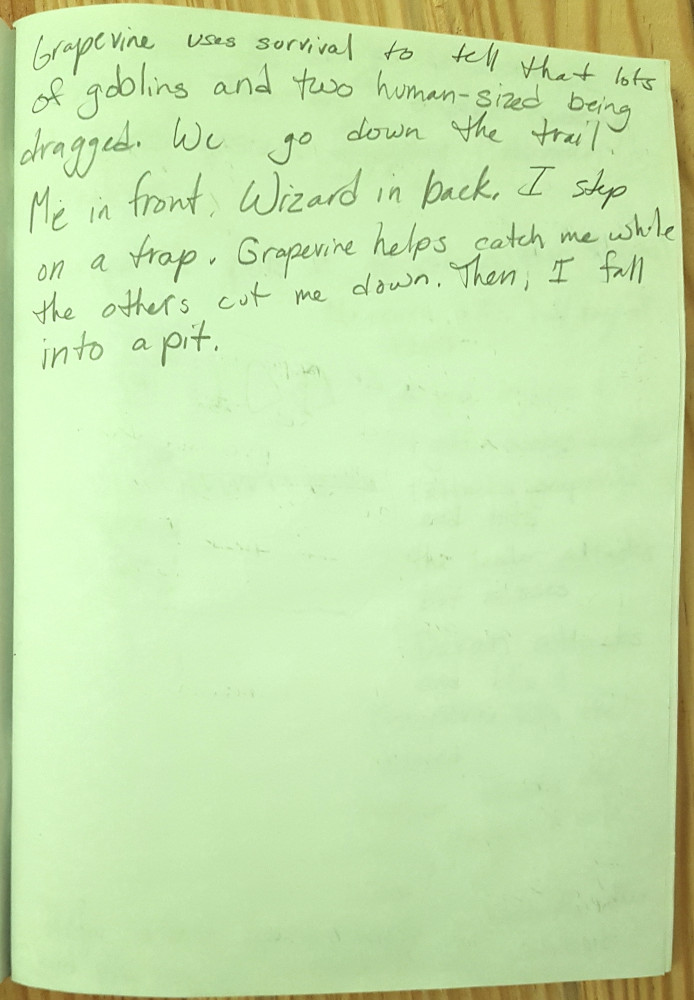 Grapevine uses survival to tell that lots
of goblins and two human-sized being
dragged. We go down the trail.
Me in front, Wizard in back. I step
on a trap. Grapevine helps catch me while
the others cut me down. Then, I fall
into a pit.